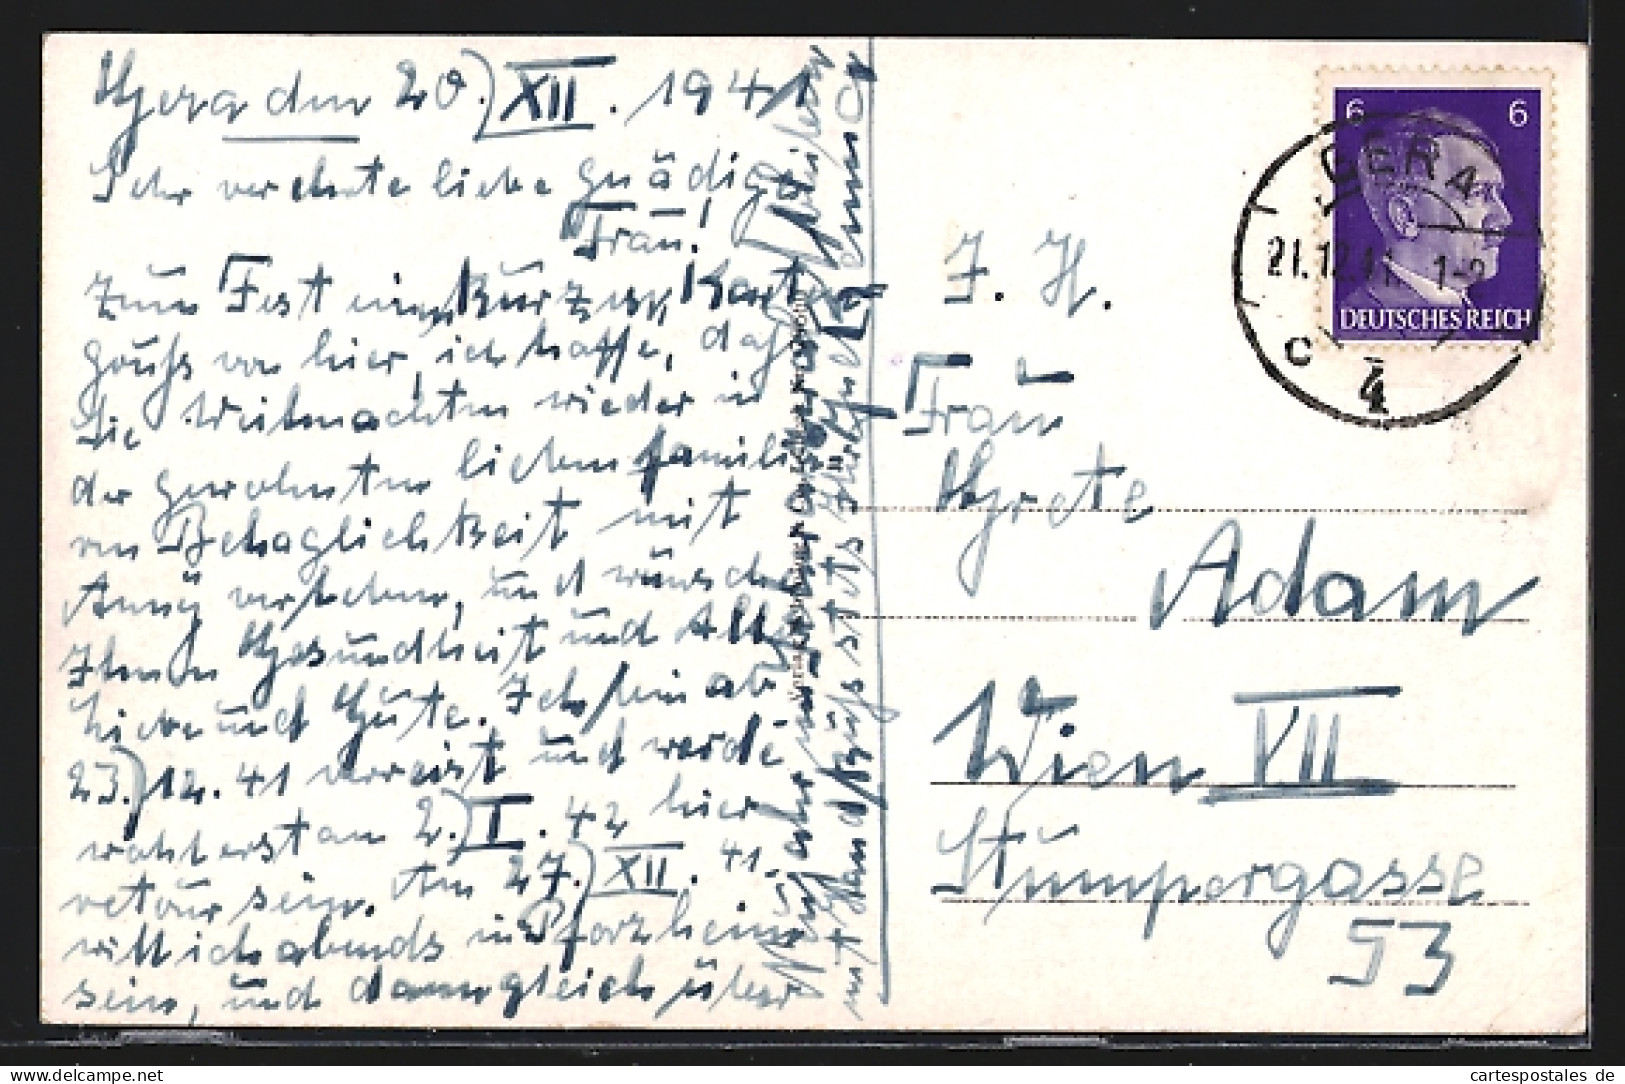 Gera den 20.) XII. 1941
Sehr verehrte liebe gnädige
Frau!
Zum Fest einen kurzen Karten
gruß von hier, ich hoffe, daß
Sie Weihnachten wieder in
der gewohnten lieben familiä
ren Behaglichkeit mit
Anny verleben, und wünsche
Ihnen Gesundheit und Alles
Liebe und Gute. Ich bin ab
23.) 12. 41 verreist und werde
wohl erst am 2.) I. 42 hier
retour sein. Am 27.) XII. 41.
will ich abends in Pforzheim
sein, und dann gleich über
Neujahr in
mit Handkuß stets Ihr
6 6
DEUTSCHES REICH
GERA
21.12.41 1-2
c 4
I. H.
Frau
Grete
Adam
Wien VII
Stumpergasse
53
cartespostales de